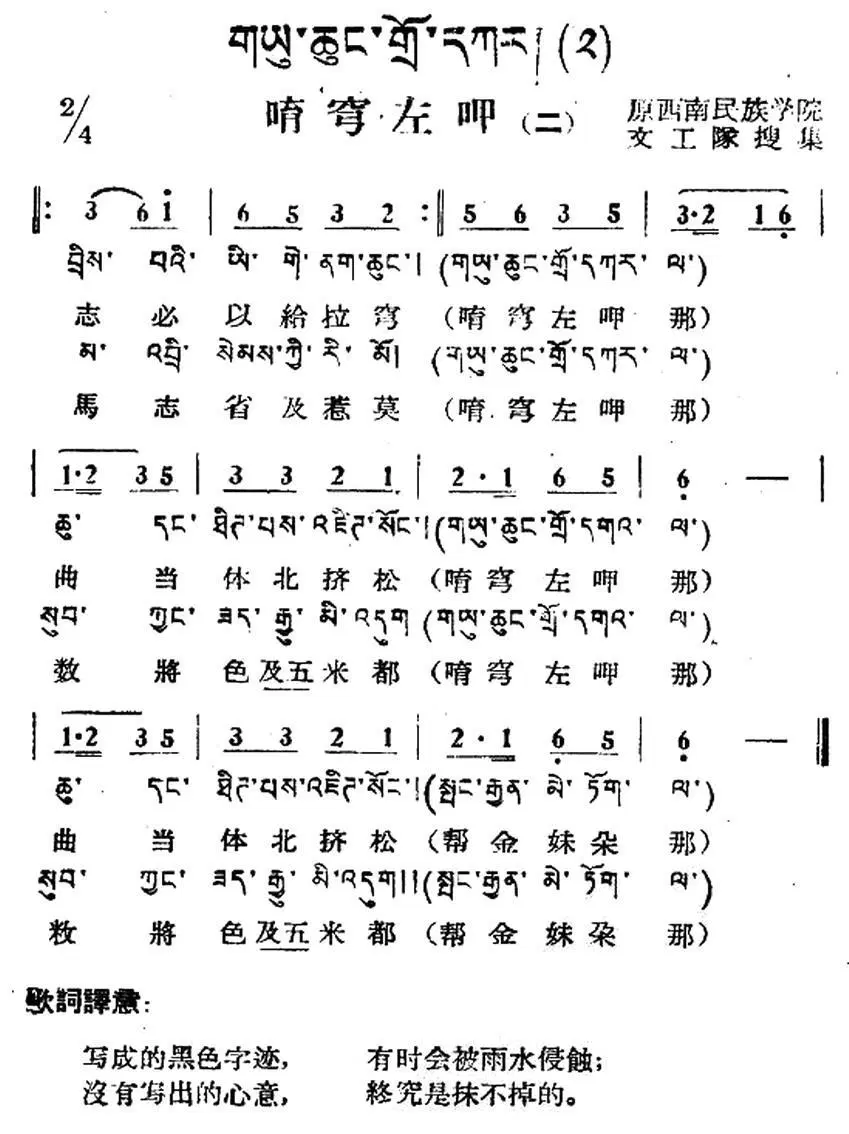 གཡུ་ཆུང་གྲོ་དཀར། (༢)
2/4 唷穹左呷（二） 原西南民族学院
文工隊搜集
‖: 3 6 i | 6 5 3 2 :‖ 5 6 3 5 | 3·2 1 6 |
བྲིས་ པའི་ ཡི་ གེ་ ནག་ཆུང་། (གཡུ་ཆུང་གྲོ་དཀར་ ལ་)
志 必 以 給 拉 穹 （唷 穹 左 呷 那）
མ་ འབྲི་ སེམས་ཀྱི་ རི་ མོ། (གཡུ་ཆུང་གྲོ་དཀར་ ལ་)
馬 志 省 及 惹 莫 （唷 穹 左 呷 那）
| 1·2 3 5 | 3 3 2 1 | 2·1 6 5 | 6 — |
ཆུ་ དང་ ཐིཊ་པས་འཇིཊ་སོང་། (གཡུ་ཆུང་གྲོ་དགའ་ ལ་)
曲 当 体 北 挤 松 （唷 穹 左 呷 那）
སུབ་ ཀྱང་ ཟད་ རྒྱུ་ མི་ འདུག (གཡུ་ཆུང་གྲོ་དགའ་ ལ་)
数 將 色 及五 米 都 （唷 穹 左 呷 那）
| 1·2 3 5 | 3 3 2 1 | 2·1 6 5 | 6 — ‖
ཆུ་ དང་ ཐིཊ་པས་འཇིཊ་སོང་། (སྤང་རྒྱན་ མེ་ ཏོག་ ལ་)
曲 当 体 北 挤 松 （帮 金 妹 朵 那）
སུབ་ ཀྱང་ ཟད་ རྒྱུ་ མི་འདུག།། (སྤང་རྒྱན་ མེ་ ཏོག་ ལ་)
敉 將 色 及五 米 都 （帮 金 妹 朶 那）
歌詞譯意：
写成的黑色字迹， 有时会被雨水侵蝕；
沒有写出的心意， 終究是抹不掉的。